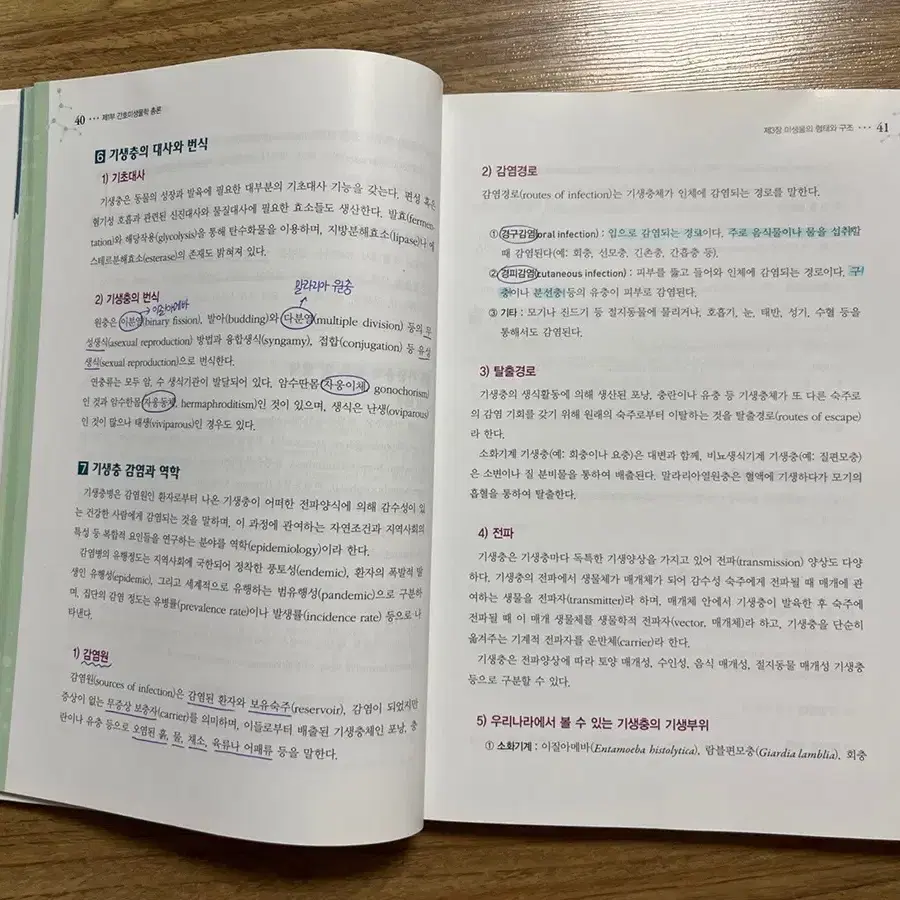 40 ••• 제1부 간호미생물학 총론
6 기생충의 대사와 번식
1) 기초대사
기생충은 동물의 성장과 발육에 필요한 대부분의 기초대사 기능을 갖는다. 편성 혹은
혐기성 호흡과 관련된 신진대사와 물질대사에 필요한 효소들도 생산한다. 발효(fermen-
tation)와 해당작용(glycolysis)을 통해 탄수화물을 이용하며, 지방분해효소(lipase)나 에
스테르분해효소(esterase)의 존재도 밝혀져 있다.
말라리아 원충
2) 기생충의 번식
이질아메바
원충은 이분열(binary fission), 발아(budding)와 다분열(multiple division) 등의 무
성생식(asexual reproduction) 방법과 융합생식(syngamy), 접합(conjugation) 등 유성
생식(sexual reproduction)으로 번식한다.
연충류는 모두 암, 수 생식기관이 발달되어 있다. 암수딴몸(자웅이체, gonochorism)
인 것과 암수한몸(자웅동체, hermaphroditism)인 것이 있으며, 생식은 난생(oviparous)
인 것이 많으나 태생(viviparous)인 경우도 있다.
7 기생충 감염과 역학
기생충병은 감염원인 환자로부터 나온 기생충이 어떠한 전파양식에 의해 감수성이 있
는 건강한 사람에게 감염되는 것을 말하며, 이 과정에 관여하는 자연조건과 지역사회의
특성 등 복합적 요인들을 연구하는 분야를 역학(epidemiology)이라 한다.
감염병의 유행정도는 지역사회에 국한되어 정착한 풍토성(endemic), 환자의 폭발적 발
생인 유행성(epidemic), 그리고 세계적으로 유행하는 범유행성(pandemic)으로 구분하
며, 집단의 감염 정도는 유병률(prevalence rate)이나 발생률(incidence rate) 등으로 나
타낸다.
1) 감염원
감염원(sources of infection)은 감염된 환자와 보유숙주(reservoir), 감염이 되었지만
증상이 없는 무증상 보충자(carrier)를 의미하며, 이들로부터 배출된 기생충체인 포낭, 충
란이나 유충 등으로 오염된 흙, 물, 채소, 육류나 어패류 등을 말한다.
제3장 미생물의 형태와 구조 ••• 41
2) 감염경로
감염경로(routes of infection)는 기생충체가 인체에 감염되는 경로를 말한다.
① 경구감염(oral infection) : 입으로 감염되는 경로이다. 주로 음식물이나 물을 섭취할
때 감염된다(예: 회충, 선모충, 긴촌충, 간흡충 등).
② 경피감염(cutaneous infection) : 피부를 뚫고 들어와 인체에 감염되는 경로이다. 구
충이나 분선충 등의 유충이 피부로 감염된다.
③ 기타 : 모기나 진드기 등 절지동물에 물리거나, 호흡기, 눈, 태반, 성기, 수혈 등을
통해서도 감염된다.
3) 탈출경로
기생충의 생식활동에 의해 생산된 포낭, 충란이나 유충 등 기생충체가 또 다른 숙주로
의 감염 기회를 갖기 위해 원래의 숙주로부터 이탈하는 것을 탈출경로(routes of escape)
라 한다.
소화기계 기생충(예: 회충이나 요충)은 대변과 함께, 비뇨생식기계 기생충(예: 질편모충)
은 소변이나 질 분비물을 통하여 배출된다. 말라리아열원충은 혈액에 기생하다가 모기의
흡혈을 통하여 탈출한다.
4) 전파
기생충은 기생충마다 독특한 기생양상을 가지고 있어 전파(transmission) 양상도 다양
하다. 기생충의 전파에서 생물체가 매개체가 되어 감수성 숙주에게 전파될 때 매개에 관
여하는 생물을 전파자(transmitter)라 하며, 매개체 안에서 기생충이 발육한 후 숙주에
전파될 때 이 매개 생물체를 생물학적 전파자(vector, 매개체)라 하고, 기생충을 단순히
옮겨주는 기계적 전파자를 운반체(carrier)라 한다.
기생충은 전파양상에 따라 토양 매개성, 수인성, 음식 매개성, 절지동물 매개성 기생충
등으로 구분할 수 있다.
5) 우리나라에서 볼 수 있는 기생충의 기생부위
① 소화기계 : 이질아메바(Entamoeba histolytica), 람블편모충(Giardia lamblia), 회충